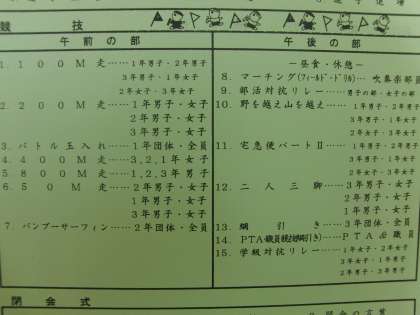 競技
午前の部
1．100M走……1年男子・2年男子
3年男子・1年女子
2年女子・3年女子
2．200M走……1年男子・女子
2年男子・女子
3年男子・女子
3．バトル玉入れ……1年団体・全員
4．400M走……3,2,1年女子
5．800M走……1,2,3年男子
6．50M走……2年男子・女子
1年男子・女子
3年男子・女子
7．バンブーサーフィン……2年団体・全員
午後の部
－昼食・休憩－
8．マーチング(フィールド・ドリル)…吹奏楽部員
9．部活対抗リレー……男子の部・女子の部
10．野を越え山を越え……1年男子・2年男子
3年男子・1年女子
2年女子・3年女子
11．宅急便パートⅡ……1年男子・2年男子
3年男子・1年女子
2年女子・3年女子
12．二人三脚……3年男子・女子
2年男子・女子
1年男子・女子
13．綱引き……3年団体・全員
14．PTA・職員
15．学級対抗リレー……1年女子・2年女子
3年女子・1年男子
2年男子・3年男子
閉会式